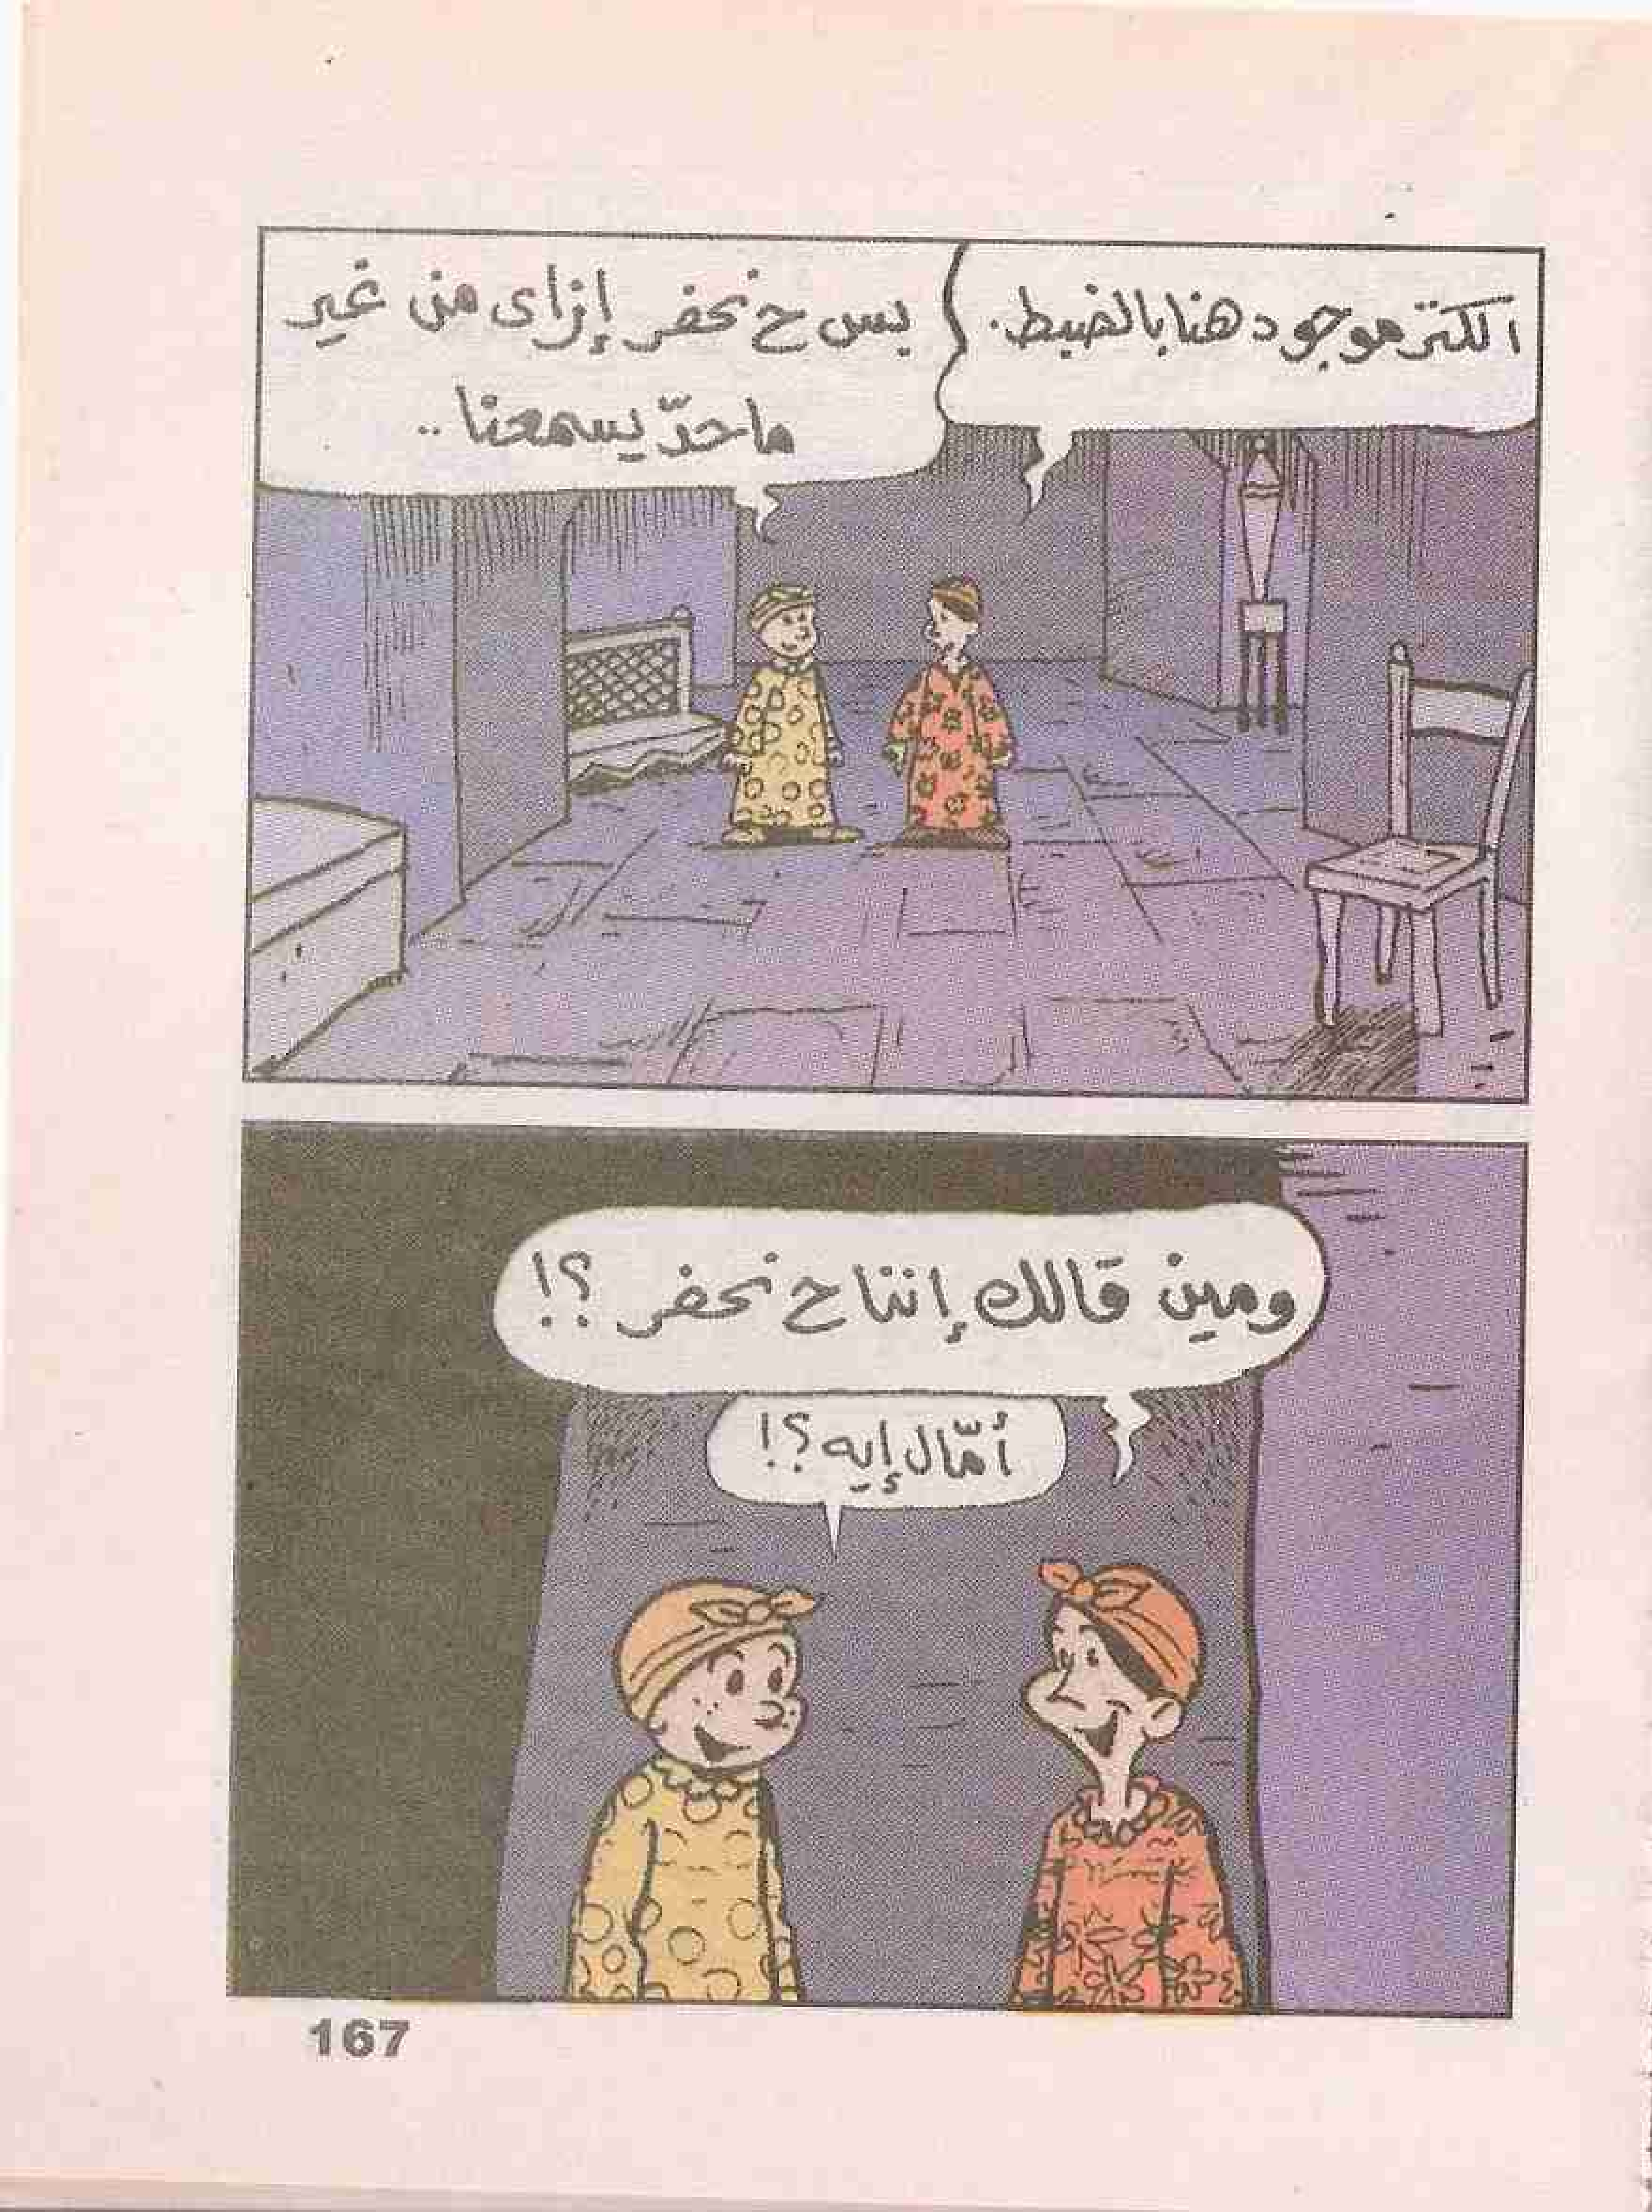 الكنز موجود هنا بالضبط.
بس ح نحفر إزاى من غير
ما حدّ يسمعنا..
ومين قالك إننا ح نحفر؟!
أمّال إيه؟!
167